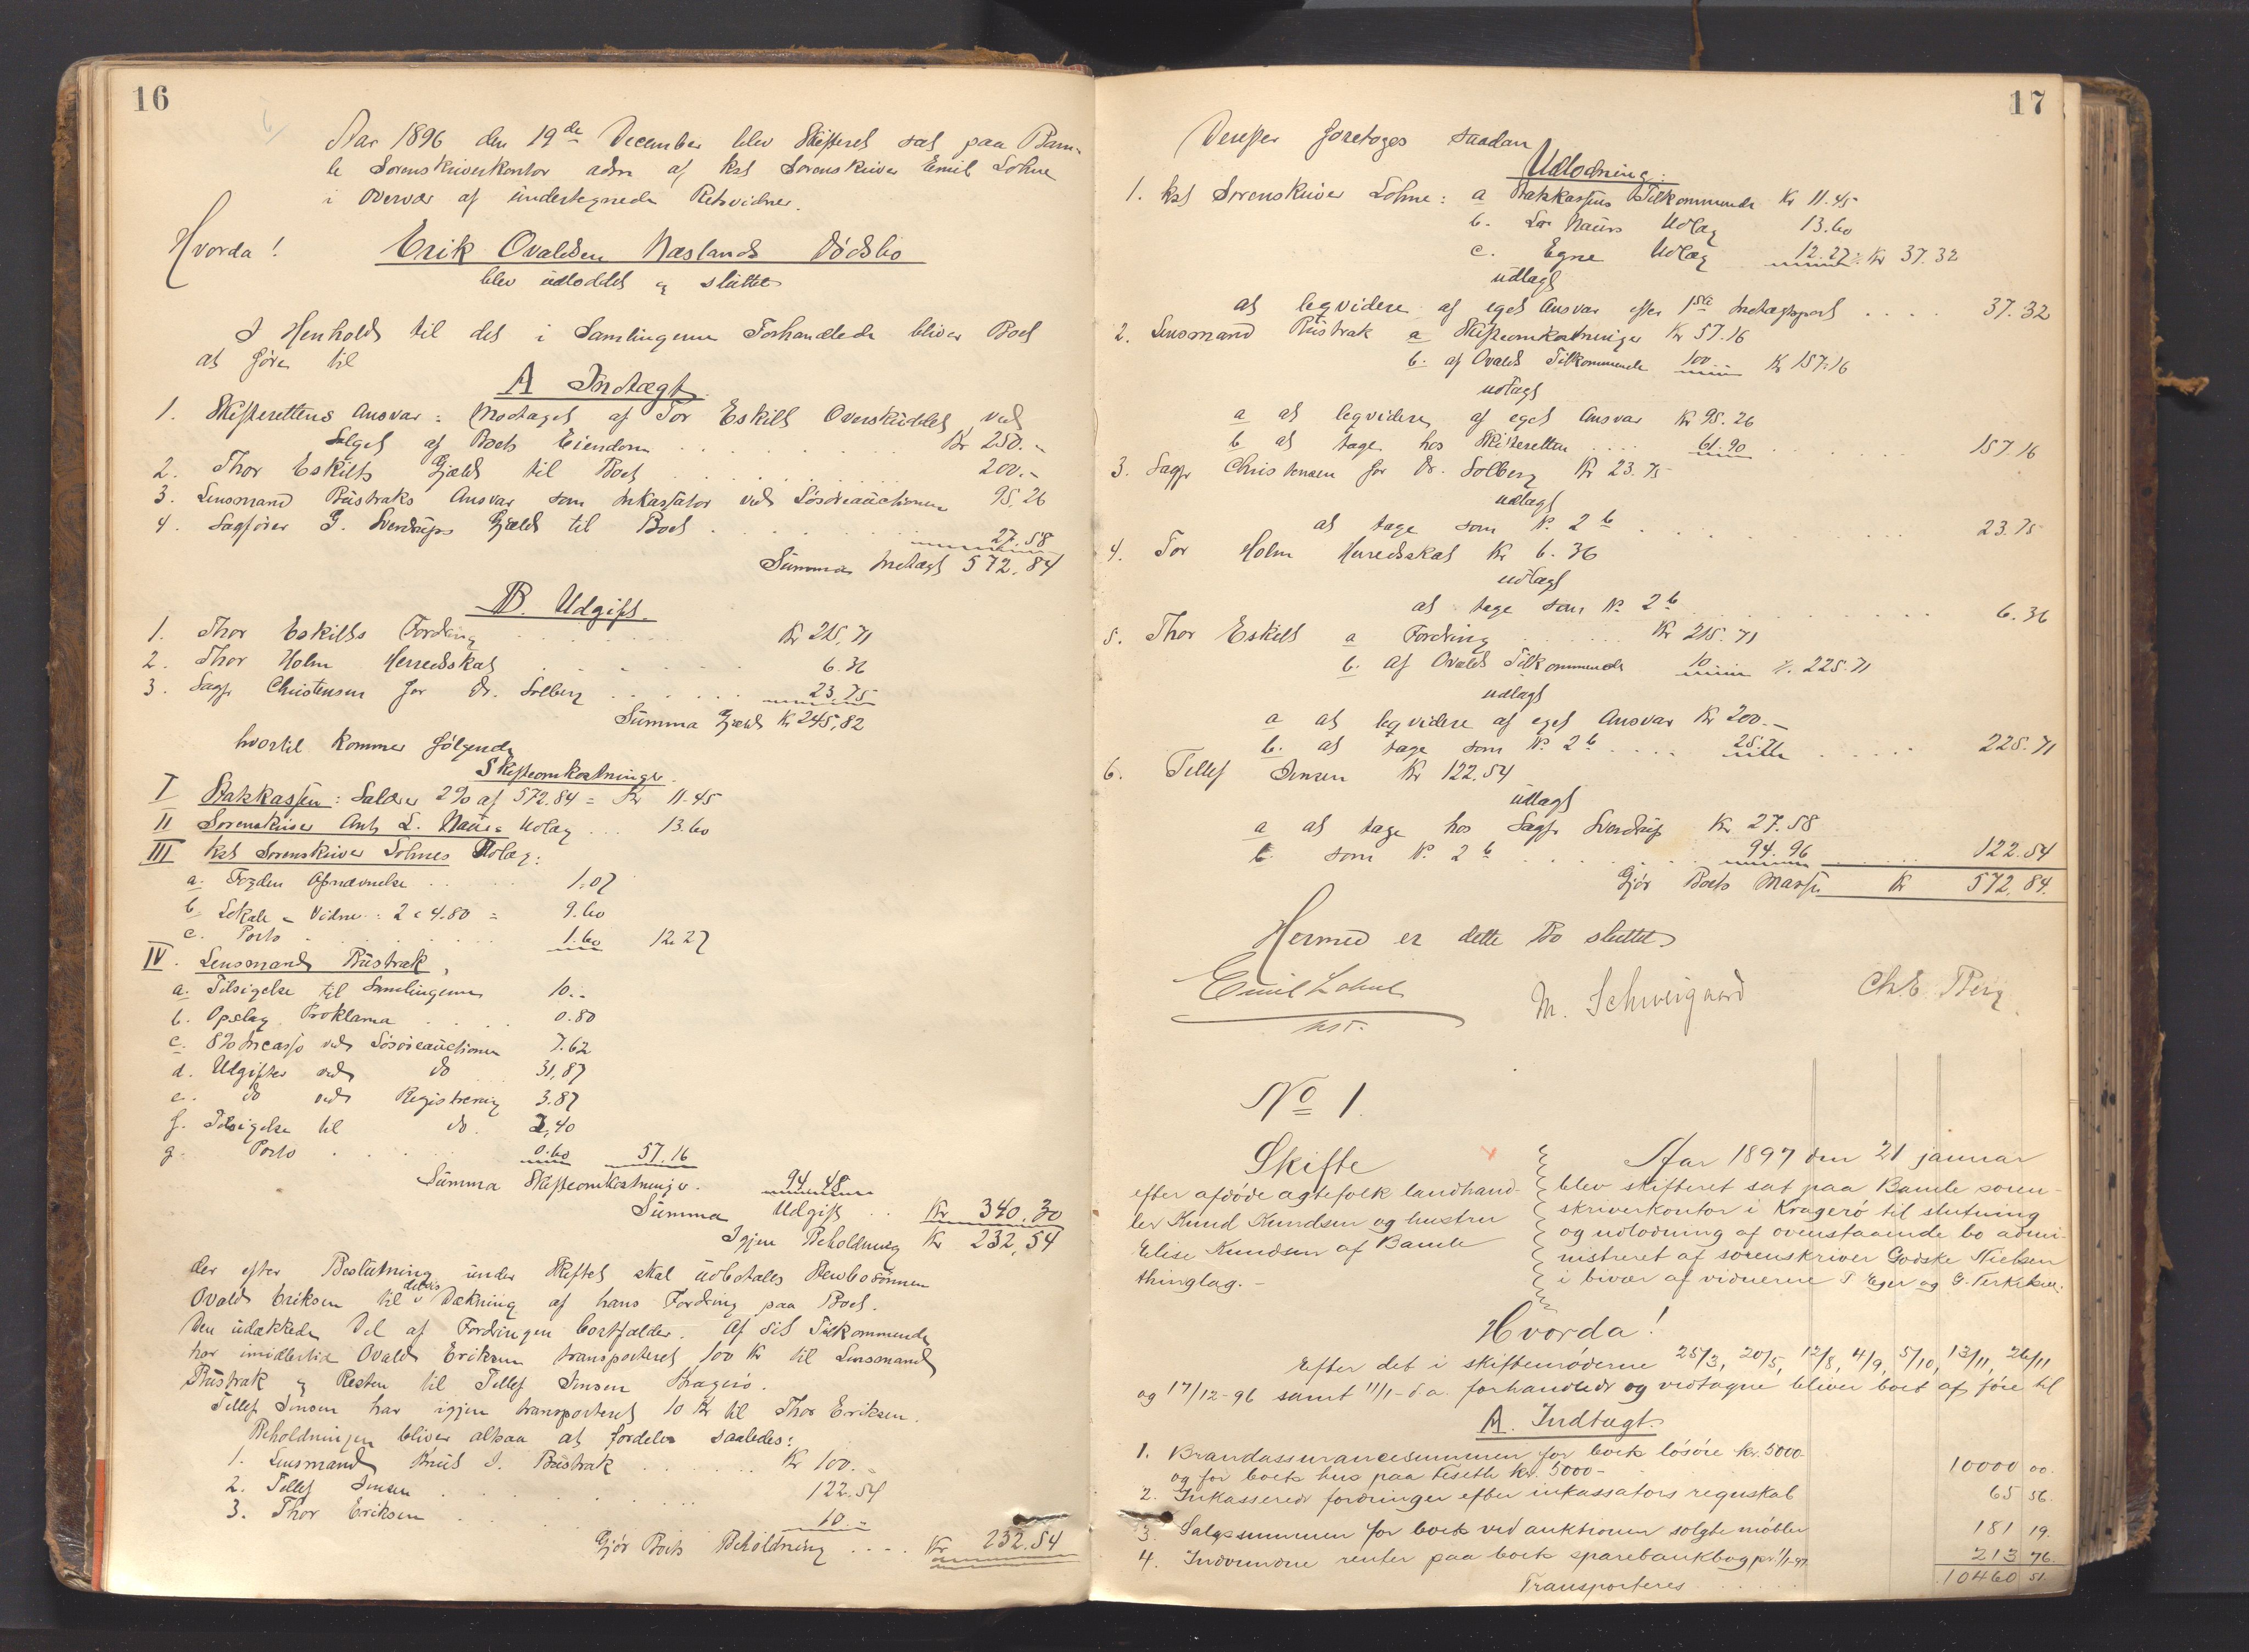 16
Aar 1896 den 19de December blev Skifteret sat paa Bam-
le Sorenskriverkontor adm af kst Sorenskriver Emil Lohne
i Overvær af undertegnede Retsvidner.
Hvorda!
Erik Ovaldsen Næslands Dødsbo
blev udloddet og sluttet
I Henhold til det i Samlingerne Forhandlede bliver Boet
at føre til
A Indtægt.
1. Skifterettens Ansvar: Modtaget af Tor Eskilt Overskuddet ved
Salget af Boets Eiendom Kr 250.-
2. Thor Eskilts Gjæld til Boet 200.-
3. Lensmand Rustraks Ansvar som Inkassator ved Løsøreauctionen 95,26
4. Sagfører G. Sverdrups Gjæld til Boet 27.58
Summa Indtægt 572,84
B. Udgift.
1. Thor Eskilts Fordring Kr 215,71
2. Thor Holm Herredsskat 6.36
3. Sagf Christensen for Dr. Solberg 23.75
Summa Gjæld Kr 245,82
hvortil kommer følgende
Skifteomkostninger.
I Statskassen: Salær 2% af 572.84 = Kr 11.45
II Sorenskriver Ant. L. Naürs Udlæg ... 13.60
III kst Sorenskriver Lohnes Udlæg:
a. Fogden Opnævnelse 1.07
b. Lokale - Vidne: 2 à 4.80 = 9.60
c. Porto 1.60 12.27
IV. Lensmand Rustrak,
a. Tilsigelse til Samlingerne 10.-
b. Opslag Proklama 0.80
c. 8% Incasso ved Løsøreauctionen 7.62
d. Udgifter ved do 31,87
e. do ved Registrering 3.87
f. Tilsigelse til do. 2,40
g. Porto 0.60 57.16
Summa Skifteomkostninger. 94.48
Summa Udgift .. Kr 340.30
Igjen Beholdning Kr 232,54
der efter Beslutning under Skiftet skal udbetales Stervbosønnen
Ovald Eriksen til delvis Dækning af hans Fordring paa Boet.
Den udækkede Del af Fordringen bortfalder. Af sit Tilkommende
har imidlertid Ovald Eriksen transporteret 100 Kr til Lensmand
Rustrak og Resten til Tellef Jensen Kragerø.
Tellef Jensen har igjen transporteret 10 Kr til Thor Eriksen.
Beholdningen bliver altsaa at fordele saaledes:
1. Lensmand Knut J. Rustrak Kr 100.-
2. Tellef Jensen 122.54
3. Thor Eriksen 10.-
Gjør Boets Beholdning .... Kr 232.54
17
Derefter foretoges saadan
Udlodning:
1. kst Sorenskriver Lohne: a Statskassens Tilkommende Kr 11.45
b. Sor Naürs Udlæg 13.60
c. Egne Udlæg 12.27 Kr 37.32
udlagt
at leqvidere af eget Ansvar efter 1ste Indtægtspost .... 37.32
2. Lensmand Rustrak a Skifteomkostninger Kr 57.16
b. af Ovalds Tilkommende 100.- Kr 157.16
udlagt
a at leqvidere af eget Ansvar Kr 95.26
b at tage hos Skifteretten .... 61.90 157.16
3. Sagf Christensen for Dr. Solberg Kr 23.75
udlagt
at tage som No 2 b 23.75
4. Tor Holm Herredsskat Kr 6.36
udlagt
at tage som No 2 b 6.36
5. Thor Eskilt a Fordring Kr 215.71
b. af Ovalds Tilkommende 10 225.71
udlagt
a at leqvidere af eget Ansvar Kr 200.-
b. at tage som No 2 b .... 25.71 225.71
6. Tellef Jensen Kr 122.54
udlagt
a at tage hos Sagf Sverdrup Kr 27.58
b. som No 2 b 94.96 122.54
Gjør Boets Masse Kr 572,84.
Hermed er dette Bo sluttet
Emil Lohne
kst.
M. Schweigaard
Chr. E. Berg
No 1.
Skifte
efter afdøde ægtefolk landhand-
ler Knud Knudsen og hustru
Elise Knudsen af Bamle
thinglag.-
Aar 1897 den 21 januar
blev skifteret sat paa Bamle soren-
skriverkontor i Kragerø til slutning
og udlodning af ovenstaaende bo admi-
nistreret af sorenskriver Godske Nielsen
i bivær af vidnerne T Eger og G. Terkelsen.
Hvorda!
Efter det i skiftemøderne 25/3, 20/5, 12/8, 4/9, 5/10, 13/11, 26/11
og 17/12-96 samt 11/1 d.a. forhandlede og vedtagne bliver boet at føre til
A. Indtægt
1. Brandassurancesummen for boets løsøre kr. 5000-
og for boets hus paa Feseth kr. 5000- 10000 00.
2. Inkasserede fordringer efter inkassators regnskab 65 56.
3. Salgssummen for boets ved auktionen solgte møbler 181 19.
4. Indvundne renter paa boets sparebankbog pr. 1/1-97 213 76.
Transporteres 10460 51.